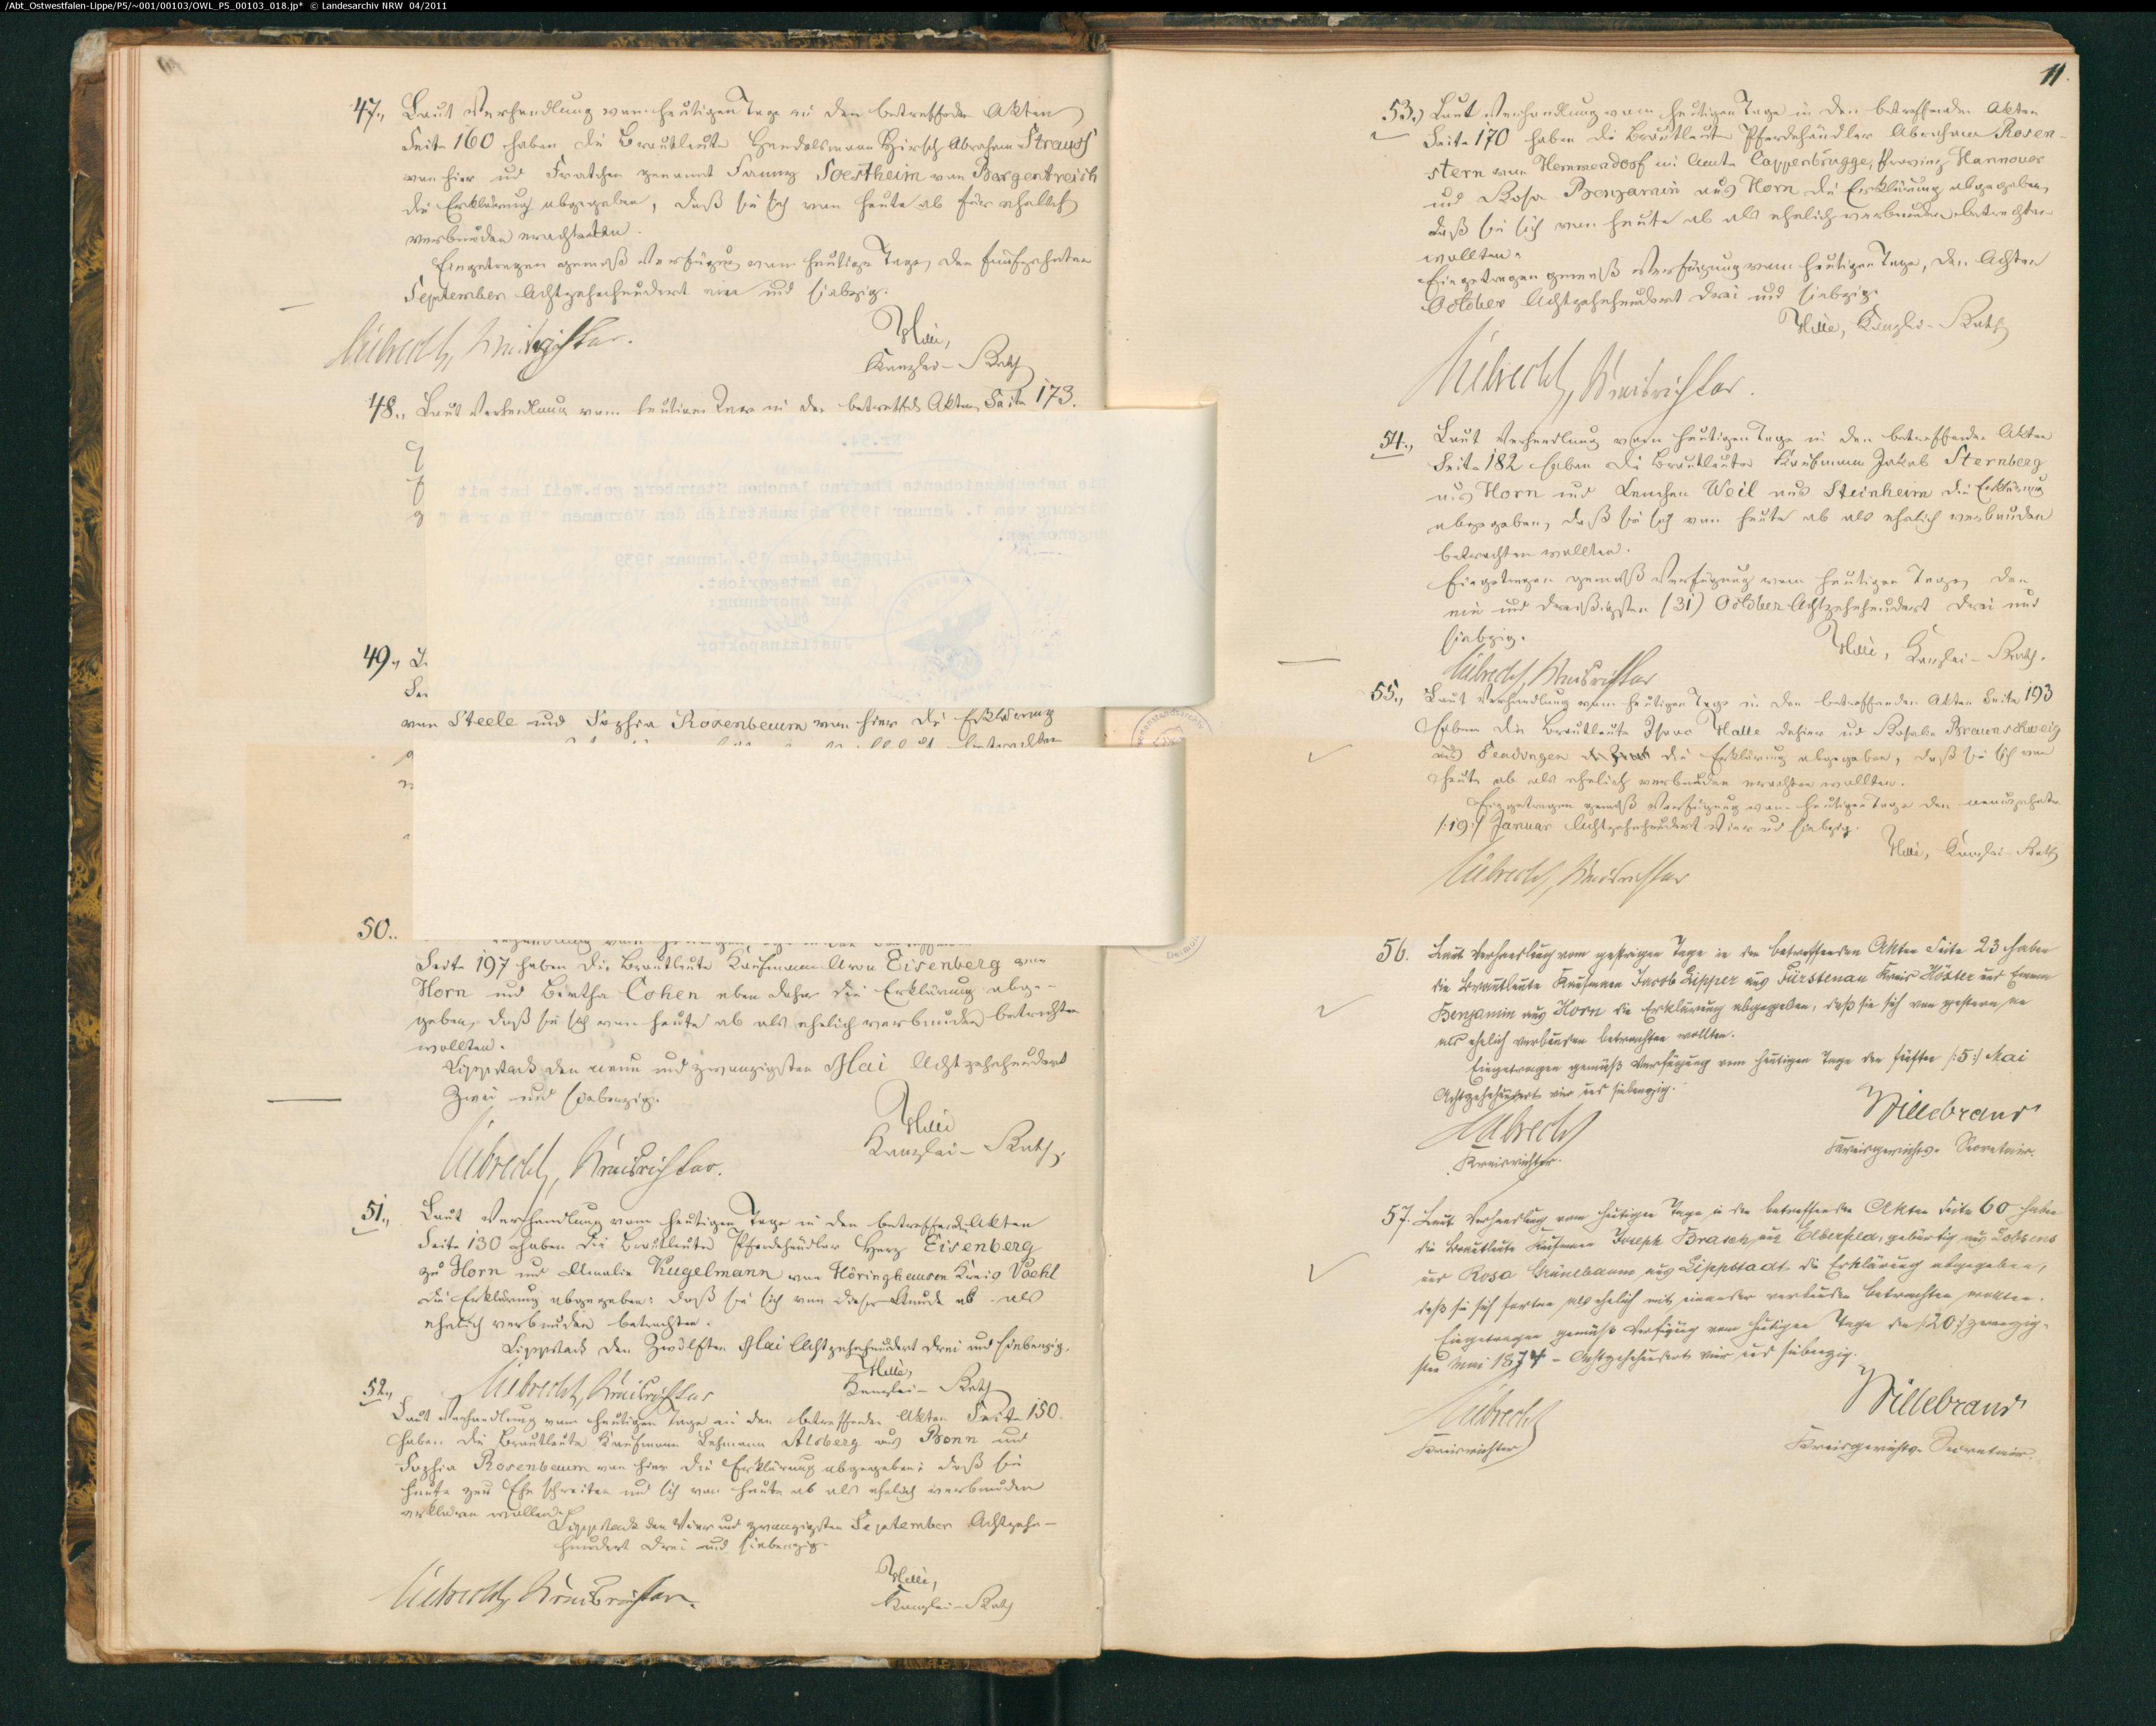 /Abt_Ostwestfalen-Lippe/P5/~001/00103/OWL_P5_00103_018.jp* © Landesarchiv NRW 04/2011
47., Laut Verhandlung vom heutigen Tage in den betreffenden Akten
Seite 160 haben die Brautleute Handelsmann Hirsch Abraham Strauss
von hier und Fratchen genannt Fanny Soestheim von Borgentreich
die Erklärung abgegeben, daß sie sich von heute ab für ehelich
verbunden erachteten.
Eingetragen gemäß Verfügung vom heutigen Tage, den fünfzehnten
September Achtzehnhundert ein und siebzig.
Kreisrichter.
Kanzlei-Rath
48., Laut Verhandlung vom heutigen Tage in den betreffd. Akten, Seite 173.
Nr. 54.
Die nebenbezeichnete Ehefrau Lenchen Sternberg geb. Weil hat mit
Wirkung vom 1. Januar 1939 ab zusätzlich den Vornamen "Sara"
angenommen.
Lippstadt, den 19. Januar 1939
Das Amtsgericht.
Auf Anordnung:
Justizinspektor
49., L
Sei
von Steele und Sophia Rosenbaum von hier die Erklärung
50..
Seite 197 haben die Brautleute Kaufmann Aron Eisenberg von
Horn und Bertha Cohen eben daher die Erklärung abge-
geben, daß sie sich von heute ab als ehelich verbunden betrachten
wollten.
Lippstadt den neun und zwanzigsten Mai Achtzehnhundert
Zwei und siebenzig.
Kreisrichter.
Kanzlei-Rath.
51., Laut Verhandlung vom heutigen Tage in den betreffenden Akten
Seite 130 haben die Brautleute Pferdehändler Herz Eisenberg
zu Horn und Amalie Kugelmann von Höringhausen Kreis Voehl
die Erklärung abgegeben: daß sie sich von dieser Stunde ab als
ehelich verbunden betrachten.
Lippstadt den Zwölften Mai Achtzehnhundert drei und siebenzig.
Kreisrichter
Kanzlei-Rath
52., Laut Verhandlung vom heutigen Tage in den betreffenden Akten Seite 150.
haben die Brautleute Kaufmann Lehmann Alsberg aus Bonn und
Sophia Rosenbaum von hier die Erklärung abgegeben: daß sie
heute zur Ehe schreiten und sich von heute ab als ehelich verbunden
erklären wollen.
Lippstadt den Vier und zwanzigsten September Achtzehn-
hundert drei und siebenzig.
Kreisrichter.
Kanzlei-Rath
11.
53.) Laut Verhandlung vom heutigen Tage in den betreffenden Akten
Seite 170 haben die Brautleute Pferdehändler Abraham Rosen-
stern von Hemmendorf im Amte Coppenbrügge, Provinz Hannover
und Rosa Benjamin aus Horn die Erklärung abgegeben,
daß sie sich von heute ab als ehelich verbunden betrachten
wollten.
Eingetragen gemäß Verfügung vom heutigen Tage, den Achten
October Achtzehnhundert drei und siebzig.
Kanzlei-Rath
Kreisrichter.
54., Laut Verhandlung vom heutigen Tage in den betreffenden Akten
Seite 182 haben die Brautleute Kaufmann Jakob Sternberg
aus Horn und Lenchen Weil aus Steinheim die Erklärung
abgegeben, daß sie sich von heute ab als ehelich verbunden
betrachten wollten.
Eingetragen gemäß Verfügung vom heutigen Tage, den
ein und dreißigsten (31) October Achtzehnhundert drei und
siebzig.
Kanzlei-Rath.
Kreisrichter
55., Laut Verhandlung vom heutigen Tage in den betreffenden Akten Seite 193
haben die Brautleute Isaac Halle dahier und Rosalie Braunschweig
aus die Erklärung abgegeben, daß sie sich von
heute ab als ehelich verbunden erachten wollten.
Eingetragen gemäß Verfügung vom heutigen Tage den neunzehnten
/:19:/ Januar Achtzehnhundert Vier und siebzig.
Kanzlei-Rath
Kreisrichter
56. Laut Verhandlung vom gestrigen Tage in den betreffenden Akten Seite 23 haben
die Brautleute Kaufmann Jacob Lipper aus Fürstenau Kreis Höxter und Emma
Benjamin aus Horn die Erklärung abgegeben, daß sie sich von gestern an
als ehelich verbunden betrachten wollten.
Eingetragen gemäß Verfügung vom heutigen Tage den fünften /:5:/ Mai
Achtzehnhundert vier und siebenzig.
Kreisrichter.
Hillebrand
Kreisgerichts-Secretair.
57. Laut Verhandlung vom heutigen Tage in den betreffenden Akten Seite 60 haben
die Brautleute Kaufmann Joseph Brasch aus Elberfeld, gebürtig aus Lobsens
und Rosa Grünebaum aus Lippstadt die Erklärung abgegeben,
daß sie sich fortan als ehelich mit einander verbunden betrachten wollten.
Eingetragen gemäß Verfügung vom heutigen Tage den /:20:/ zwanzig-
sten Mai 1874 - Achtzehnhundert vier und siebenzig.
Kreisrichter
Hillebrand
Kreisgerichts-Secretair.